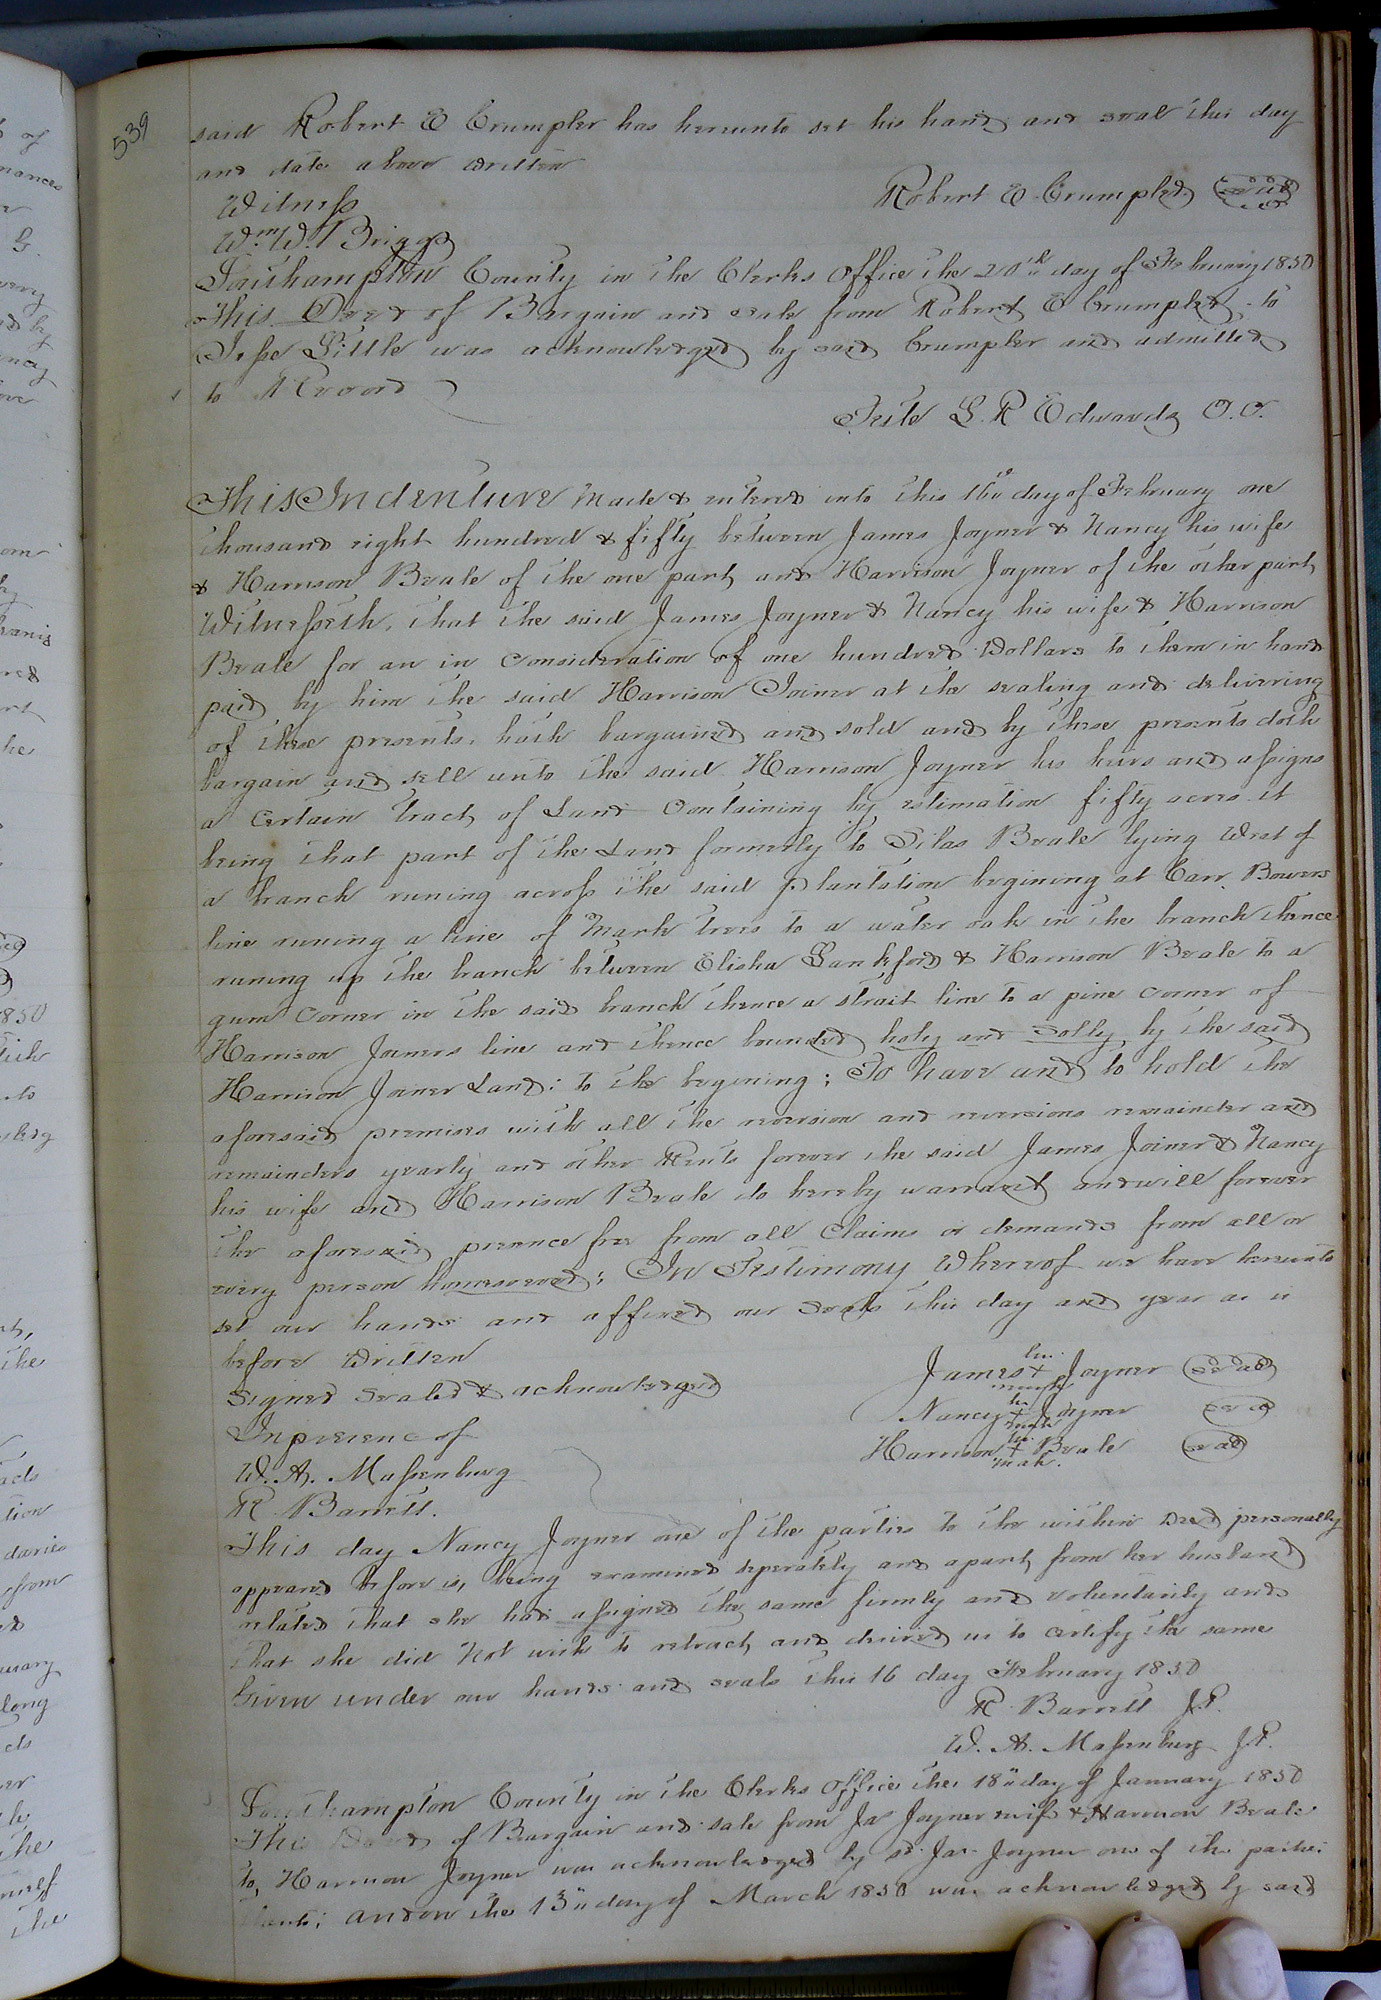 539
said Robert E Crumpler has hereunto set his hand and seal this day
and date above written
Witness Robert E. Crumpler seal
Wm W. Briggs
Southampton County in the Clerks Office the 20th day of February 1850
This Deed of Bargain and sale from Robert E Crumpler to
Jesse Little was acknowledged by said Crumpler and admitted
to Record
Teste L. R Edwards C.C.
This Indenture made & entered into this 16th day of February one
thousand eight hundred & fifty between James Joyner & Nancy his wife
& Harrison Beale of the one part and Harrison Joyner of the other part
Witnesseth, that the said James Joyner & Nancy his wife & Harrison
Beale for an in Consideration of one hundred Dollars to them in hand
paid by him the said Harrison Joiner at the sealing and delivering
of these presents, hath bargained and sold and by these presents doth
bargain and sell unto the said Harrison Joyner his heirs and assigns
a certain tract of Land Containing by estimation fifty acres it
being that part of the Land formerly to Silas Beale lying West of
a branch runing across the said plantation begining at Carr Bowers
line runing a line of Mark trees to a water oak in the branch thence
runing up the branch between Elisha Lankford & Harrison Beale to a
gum Corner in the said branch thence a strait line to a pine corner of
Harrison Joiners line and thence bounded holy and solly by the said
Harrison Joiner Land: to the begining; To have and to hold the
aforesaid premises with all the reversion and reversions remainder and
remainders yearly and other Rents forever the said James Joiner & Nancy
his wife and Harrison Beale do hereby warrant and will forever
the aforesaid premce free from all Claims or demands from all or
every person homesoever; In Testimony Whereof we have hereunto
set our hands and affixed our Seals this day and year as is
before Written
Signed Sealed & acknowledged James his + mark Joyner seal
In presenc of Nancy her + mark Joyner seal
W. A. Massenburg Harrison his + mark Beale seal
R Barrett.
This day Nancy Joyner one of the parties to the within Deed personally
appeared before us, being examined seperately and apart from her husband
related that she had assigned the same firmly and voluntarily and
that she did Not wish to retract and desired us to certify the same
Given under our hands and seals this 16 day February 1850
R. Barrett J.P.
W. A. Massenburg J.P.
Southampton County in the Clerks Office the 18th day of January 1850
This of Bargain and sale from Jas Joyner wife & Harrison Beale
to, Harrison Joyner was acknowledged by sd. Jas. Joyner one of the parties
and on the 13th day of March 1850 was acknowledged by said